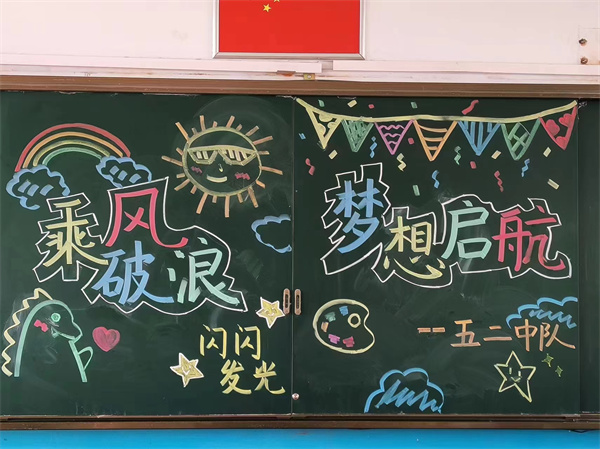 乘风
破浪
闪闪
发光
梦想启航
一一五二中队